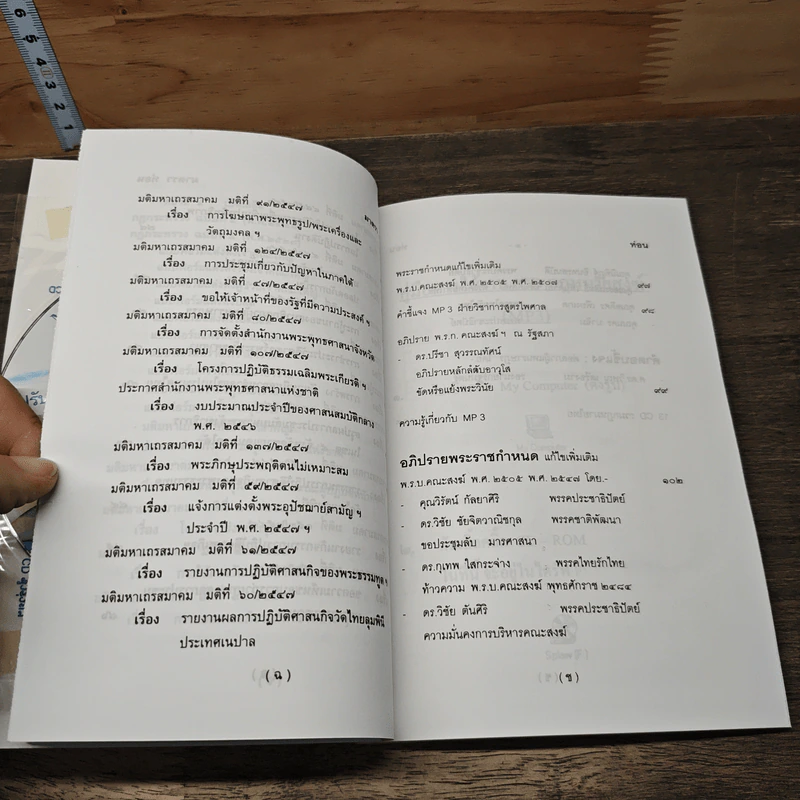 มติมหาเถรสมาคม มติที่ ๙๑/๒๕๔๗
เรื่อง การโฆษณาพระพุทธรูป/พระเครื่องและ
วัตถุมงคล ฯ
มติมหาเถรสมาคม มติที่ ๑๒๔/๒๕๔๗
เรื่อง การประชุมเกี่ยวกับปัญหาในภาคใต้
มติมหาเถรสมาคม มติที่ ๔๗/๒๕๔๗
เรื่อง ขอให้เจ้าหน้าที่ของรัฐที่มีความประสงค์ ฯ
มติมหาเถรสมาคม มติที่ ๘๐/๒๕๔๗
เรื่อง การจัดตั้งสำนักงานพระพุทธศาสนาจังหวัด
มติมหาเถรสมาคม มติที่ ๑๐๗/๒๕๔๗
เรื่อง โครงการปฏิบัติธรรมเฉลิมพระเกียรติ ฯ
ประกาศสำนักงานพระพุทธศาสนาแห่งชาติ
เรื่อง งบประมาณประจำปีของศาสนสมบัติกลาง
พ.ศ. ๒๕๔๖
มติมหาเถรสมาคม มติที่ ๑๓๗/๒๕๔๗
เรื่อง พระภิกษุประพฤติตนไม่เหมาะสม
มติมหาเถรสมาคม มติที่ ๕๙/๒๕๔๗
เรื่อง แจ้งการแต่งตั้งพระอุปัชฌาย์สามัญ ฯ
ประจำปี พ.ศ. ๒๕๔๗ ฯ
มติมหาเถรสมาคม มติที่ ๖๑/๒๕๔๗
เรื่อง รายงานการปฏิบัติศาสนกิจของพระธรรมทูต ฯ
มติมหาเถรสมาคม มติที่ ๖๐/๒๕๔๗
เรื่อง รายงานผลการปฏิบัติศาสนกิจวัดไทยลุมพินี
ประเทศเนปาล
(ฉ)
ท่อน
พระราชกำหนดแก้ไขเพิ่มเติม
พ.ร.บ.คณะสงฆ์ พ.ศ. ๒๕๐๕ พ.ศ. ๒๕๐๗ ๙๗
คำชี้แจง MP 3 ฝ่ายวิชาการสูตรไพศาล ๙๘
อภิปราย พ.ร.ก. คณะสงฆ์ ฯ ณ รัฐสภา
- ดร.ปรีชา สุวรรณทัศน์
อภิปรายหลักลำดับอาวุโส
ขัดหรือแย้งพระวินัย ๙๙
ความรู้เกี่ยวกับ MP 3
อภิปรายพระราชกำหนด แก้ไขเพิ่มเติม
พ.ร.บ.คณะสงฆ์ พ.ศ. ๒๕๐๕ พ.ศ. ๒๕๔๗ โดย.- ๑๐๒
- คุณวิรัตน์ กัลยาศิริ พรรคประชาธิปัตย์
- ดร.วิชัย ชัยจิตวาณิชกุล พรรคชาติพัฒนา
ขอประชุมลับ มารศาสนา
- ดร.กุเทพ ใสกระจ่าง พรรคไทยรักไทย
ท้าวความ พ.ร.บ.คณะสงฆ์ พุทธศักราช ๒๔๘๔
- ดร.วิชัย ตันศิริ พรรคประชาธิปัตย์
ความมั่นคงการบริหารคณะสงฆ์
(ช)